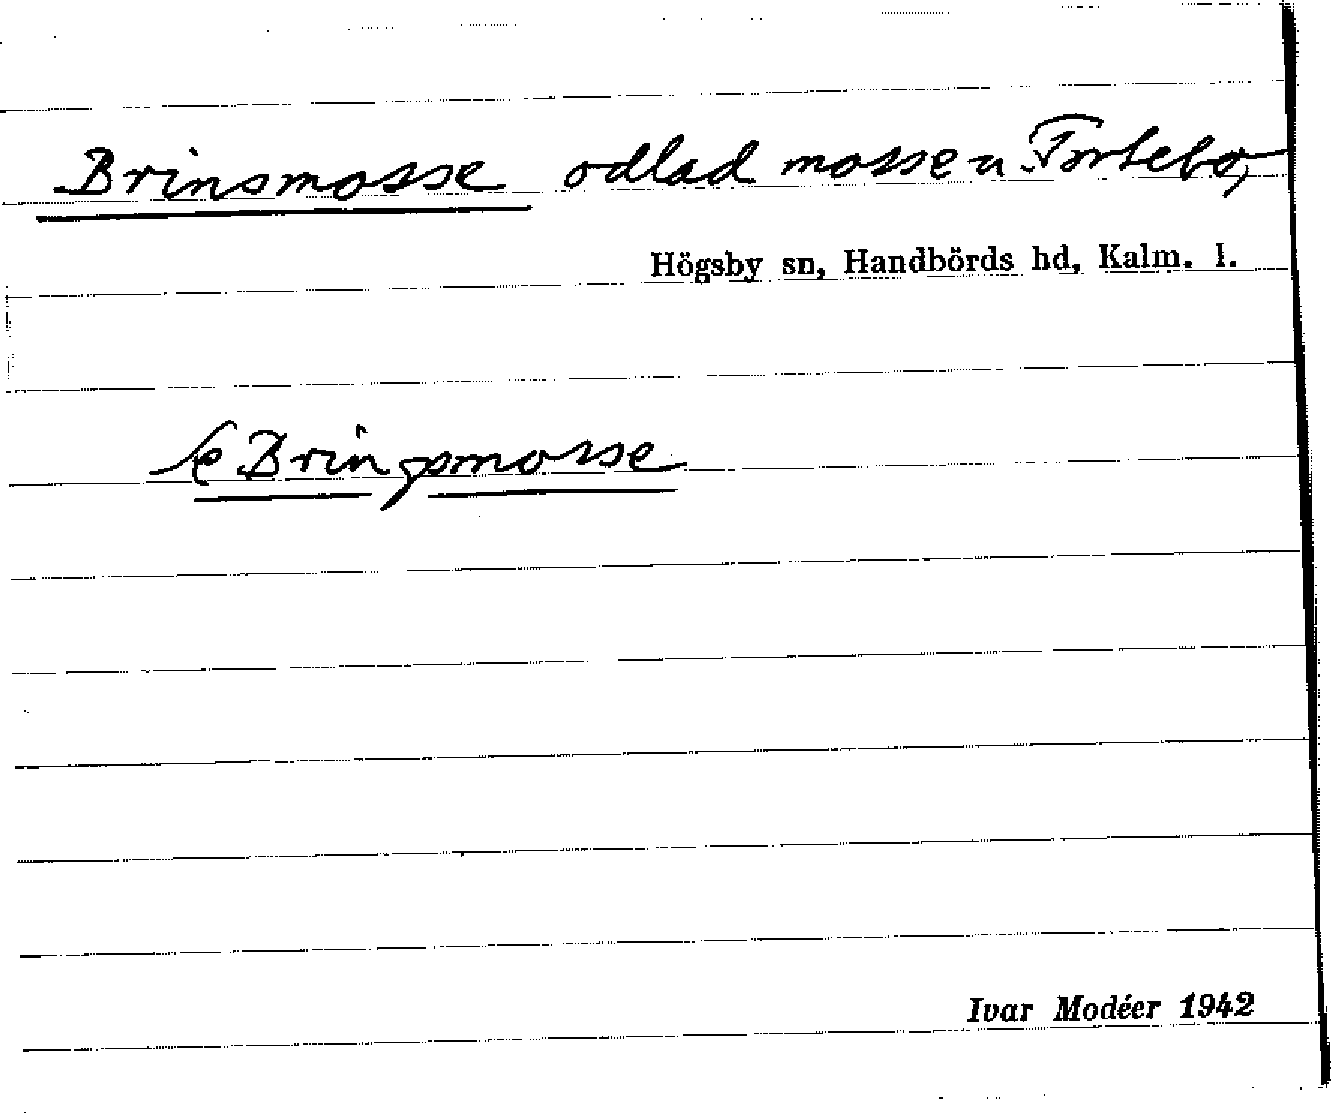 Brinsmosse odlad mosse u. Fortebo,
Högsby sn, Handbörds hd, Kalm. l.
Se Bringsmosse
Ivar Modéer 1942